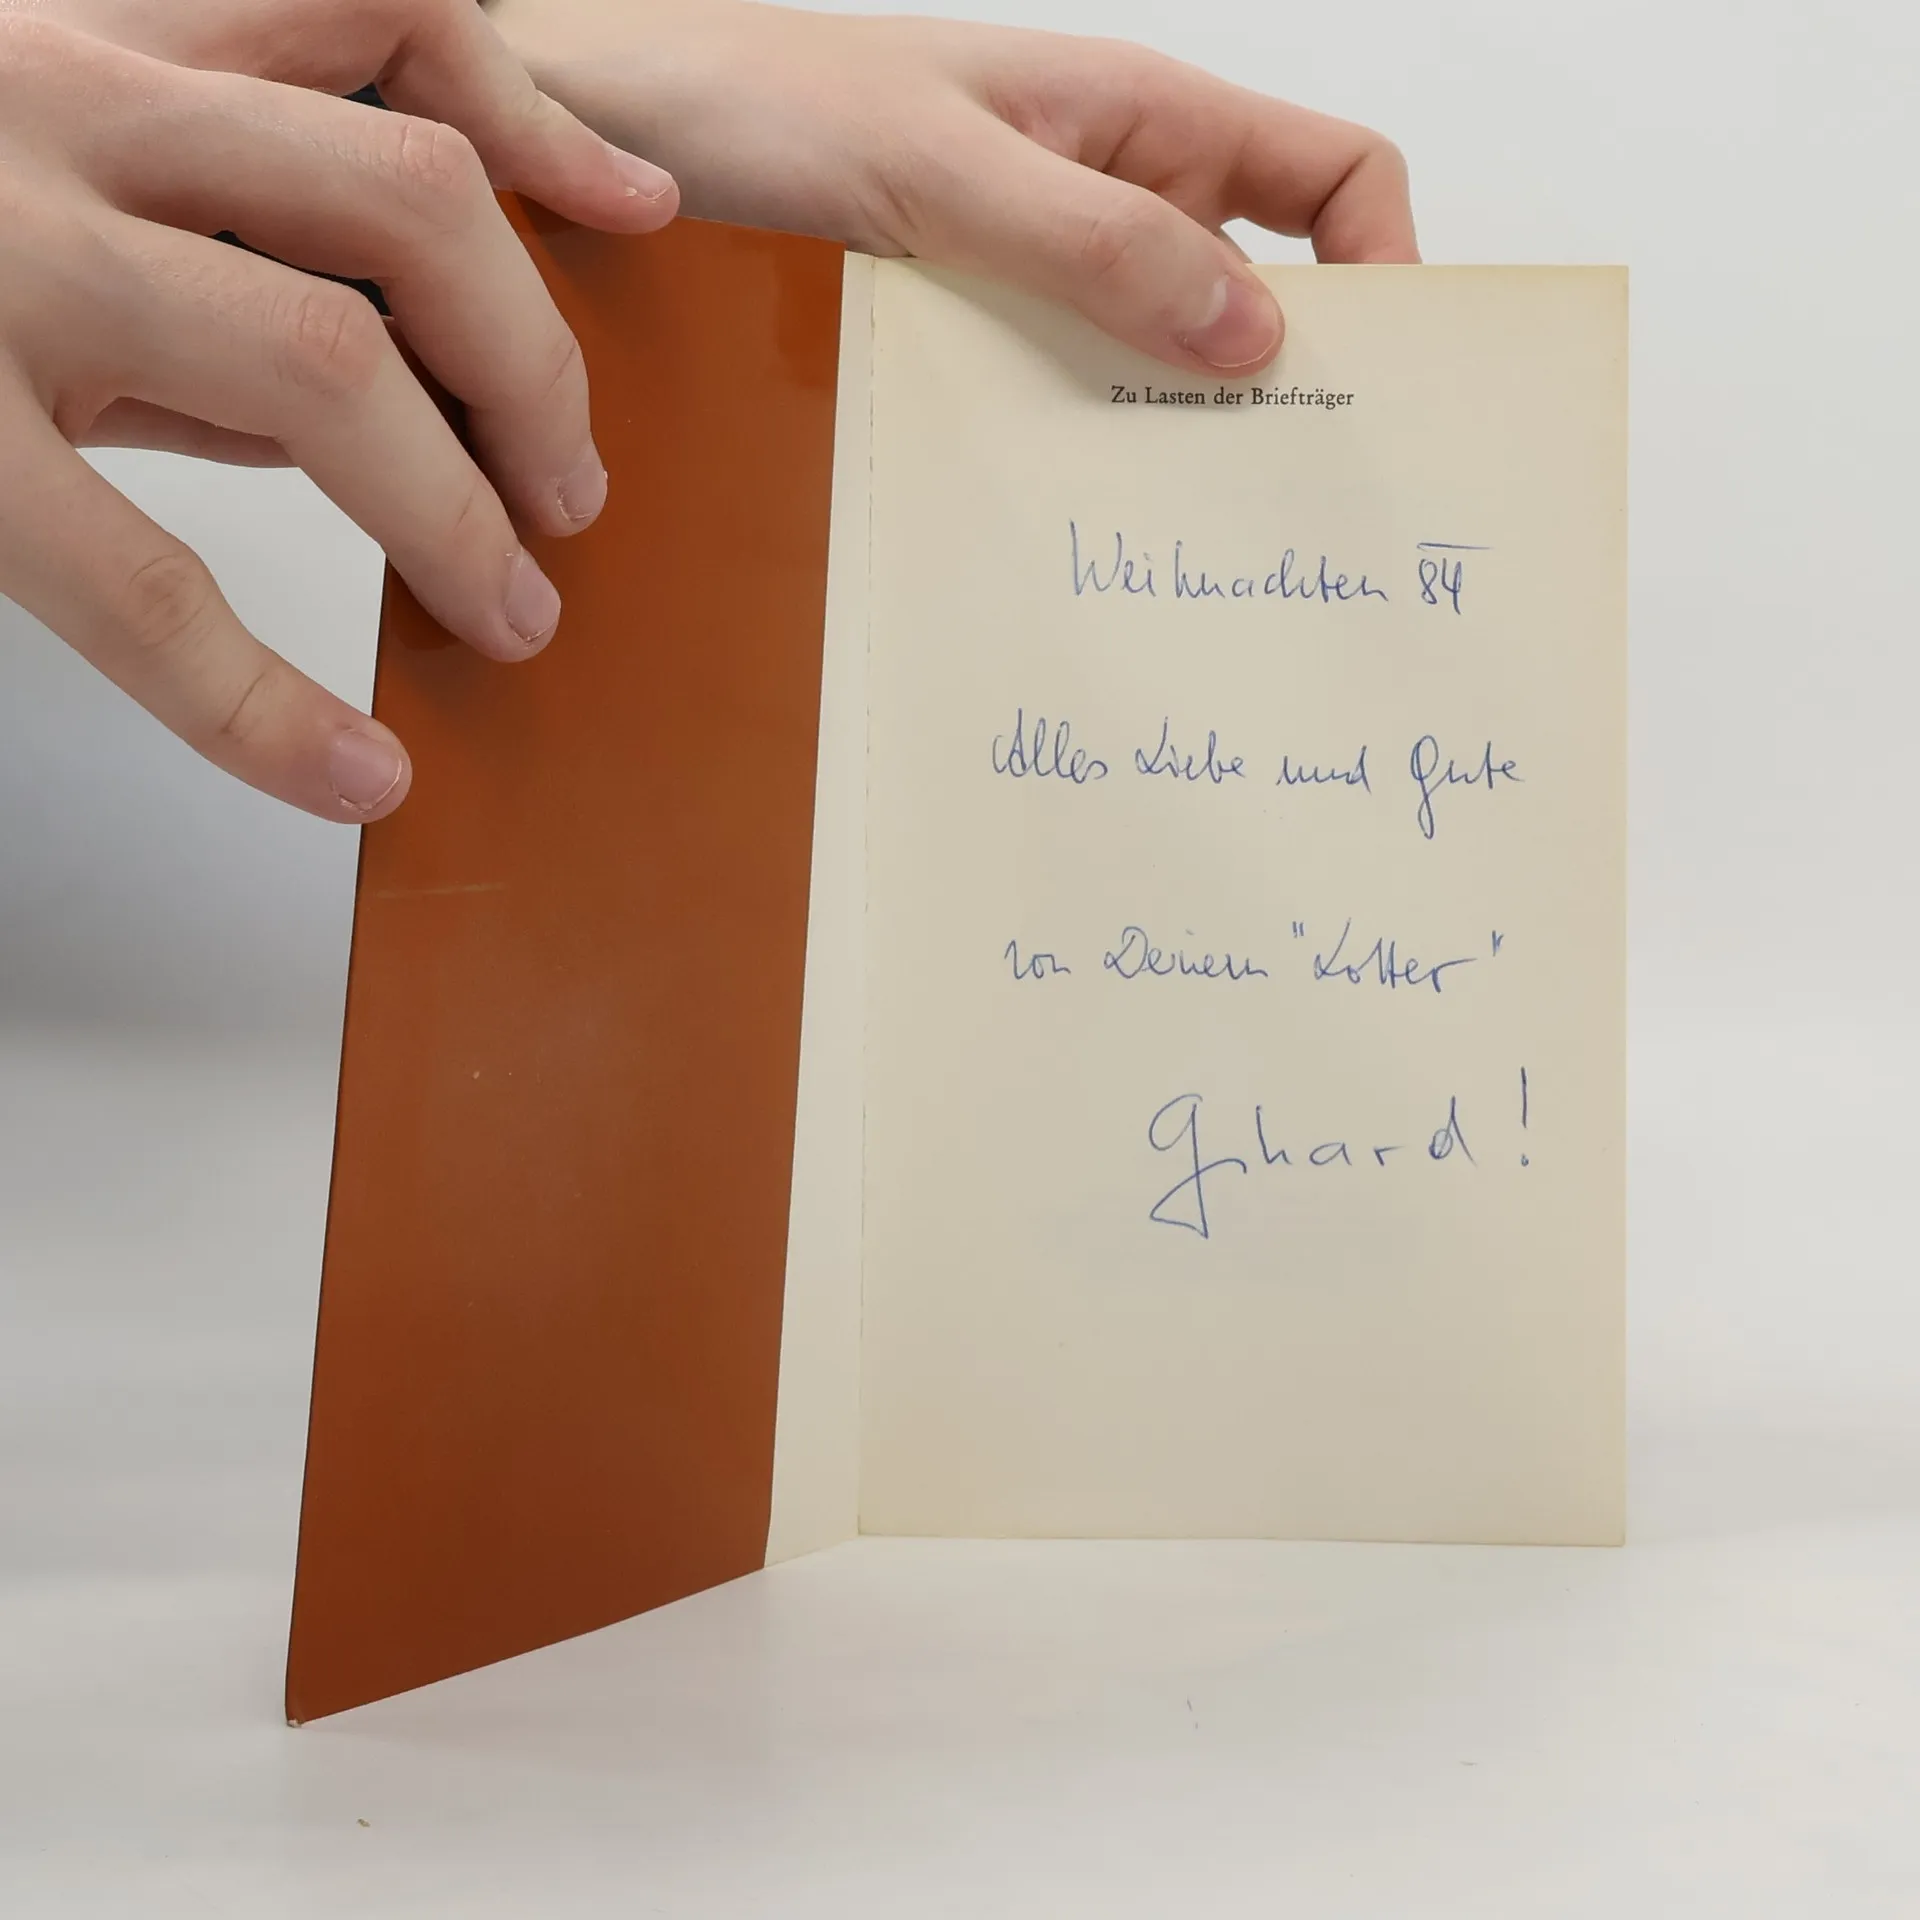 Zu Lasten der Briefträger
Weihnachten 84
Alles Liebe und Gute
von Deinem "Lotter"
Ghard!